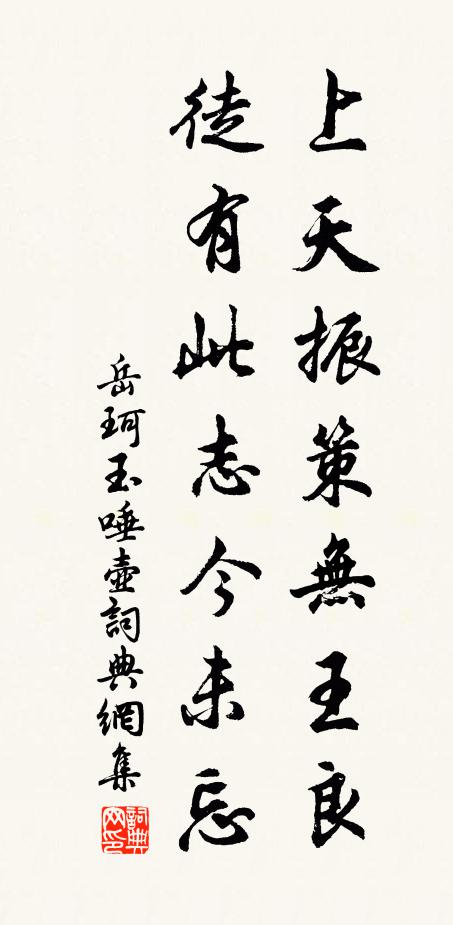 上天振策無王良
徒有此志今未忘
岳珂玉唾壺詞典網集
詞典网印